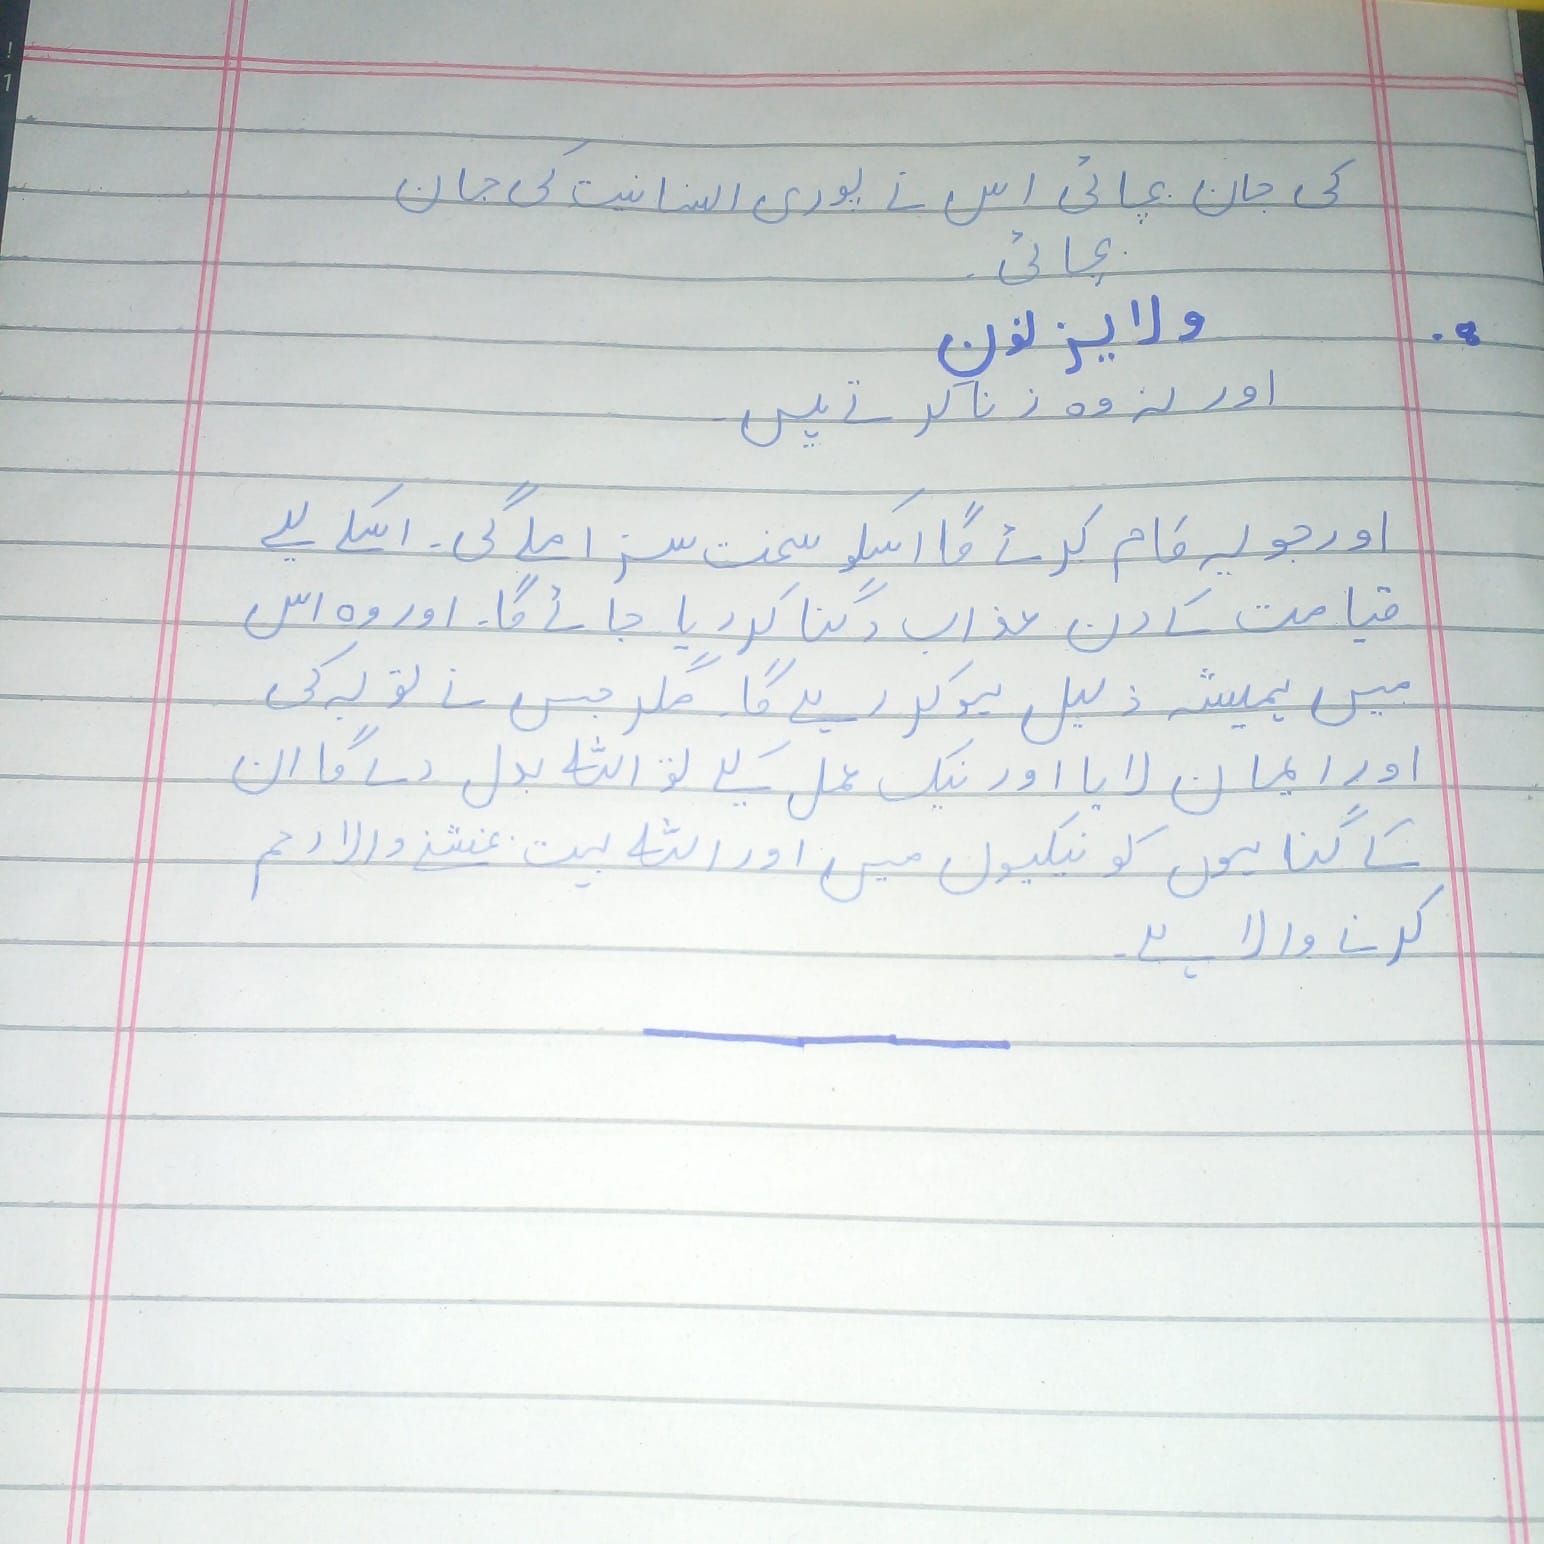 کی جان بچائی اس نے پوری انسانیت کی جان
بچائی.
8. ولا یزنون
اور نہ وہ زنا کرتے ہیں۔
اور جو یہ کام کرے گا اسکو سخت سزا ملے گی۔ اسکے لیے
قیامت کے دن عذاب دگنا کر دیا جائے گا۔ اور وہ اس
میں ہمیشہ ذلیل ہو کر رہے گا۔ مگر جس نے توبہ کی
اور ایمان لایا اور نیک عمل کیے تو اللہ بدل دے گا ان
کے گناہوں کو نیکیوں میں اور اللہ بہت بخشنے والا رحم
کرنے والا ہے۔